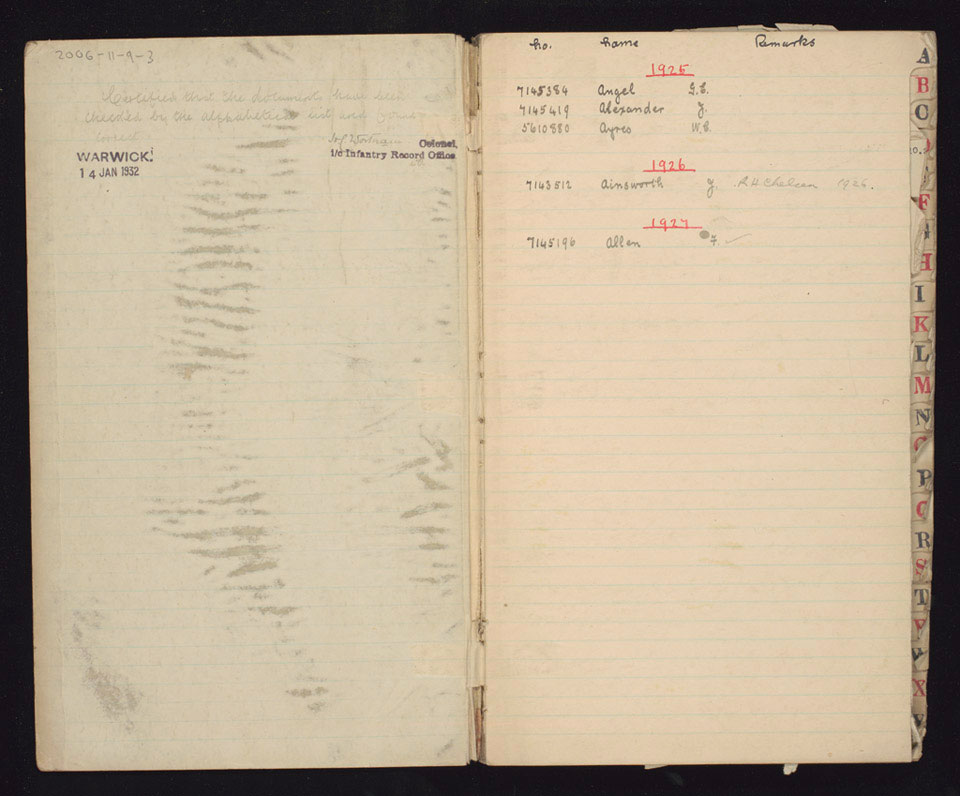 2006-11-9-3
Certified that the documents have been
checked by the alphabetical list and found
correct
Colonel,
i/c Infantry Record Office.
WARWICK.
14 JAN 1932
No. Name Remarks
1925
7145384 Angel G.E.
7145419 Alexander J.
5610880 Ayres W.C.
1926
7143512 Ainsworth J. R.H. Chelsea 1926.
1927
7145196 Allen F ✓
A
B
C
F
H
I
K
L
M
N
O
P
Q
R
S
T
V
X